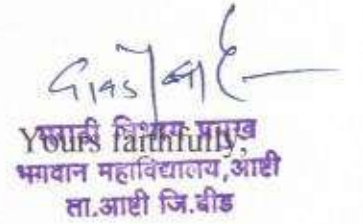 Yours faithfully,
मराठी विभाग प्रमुख
भगवान महाविद्यालय,आष्टी
ता.आष्टी जि.बीड